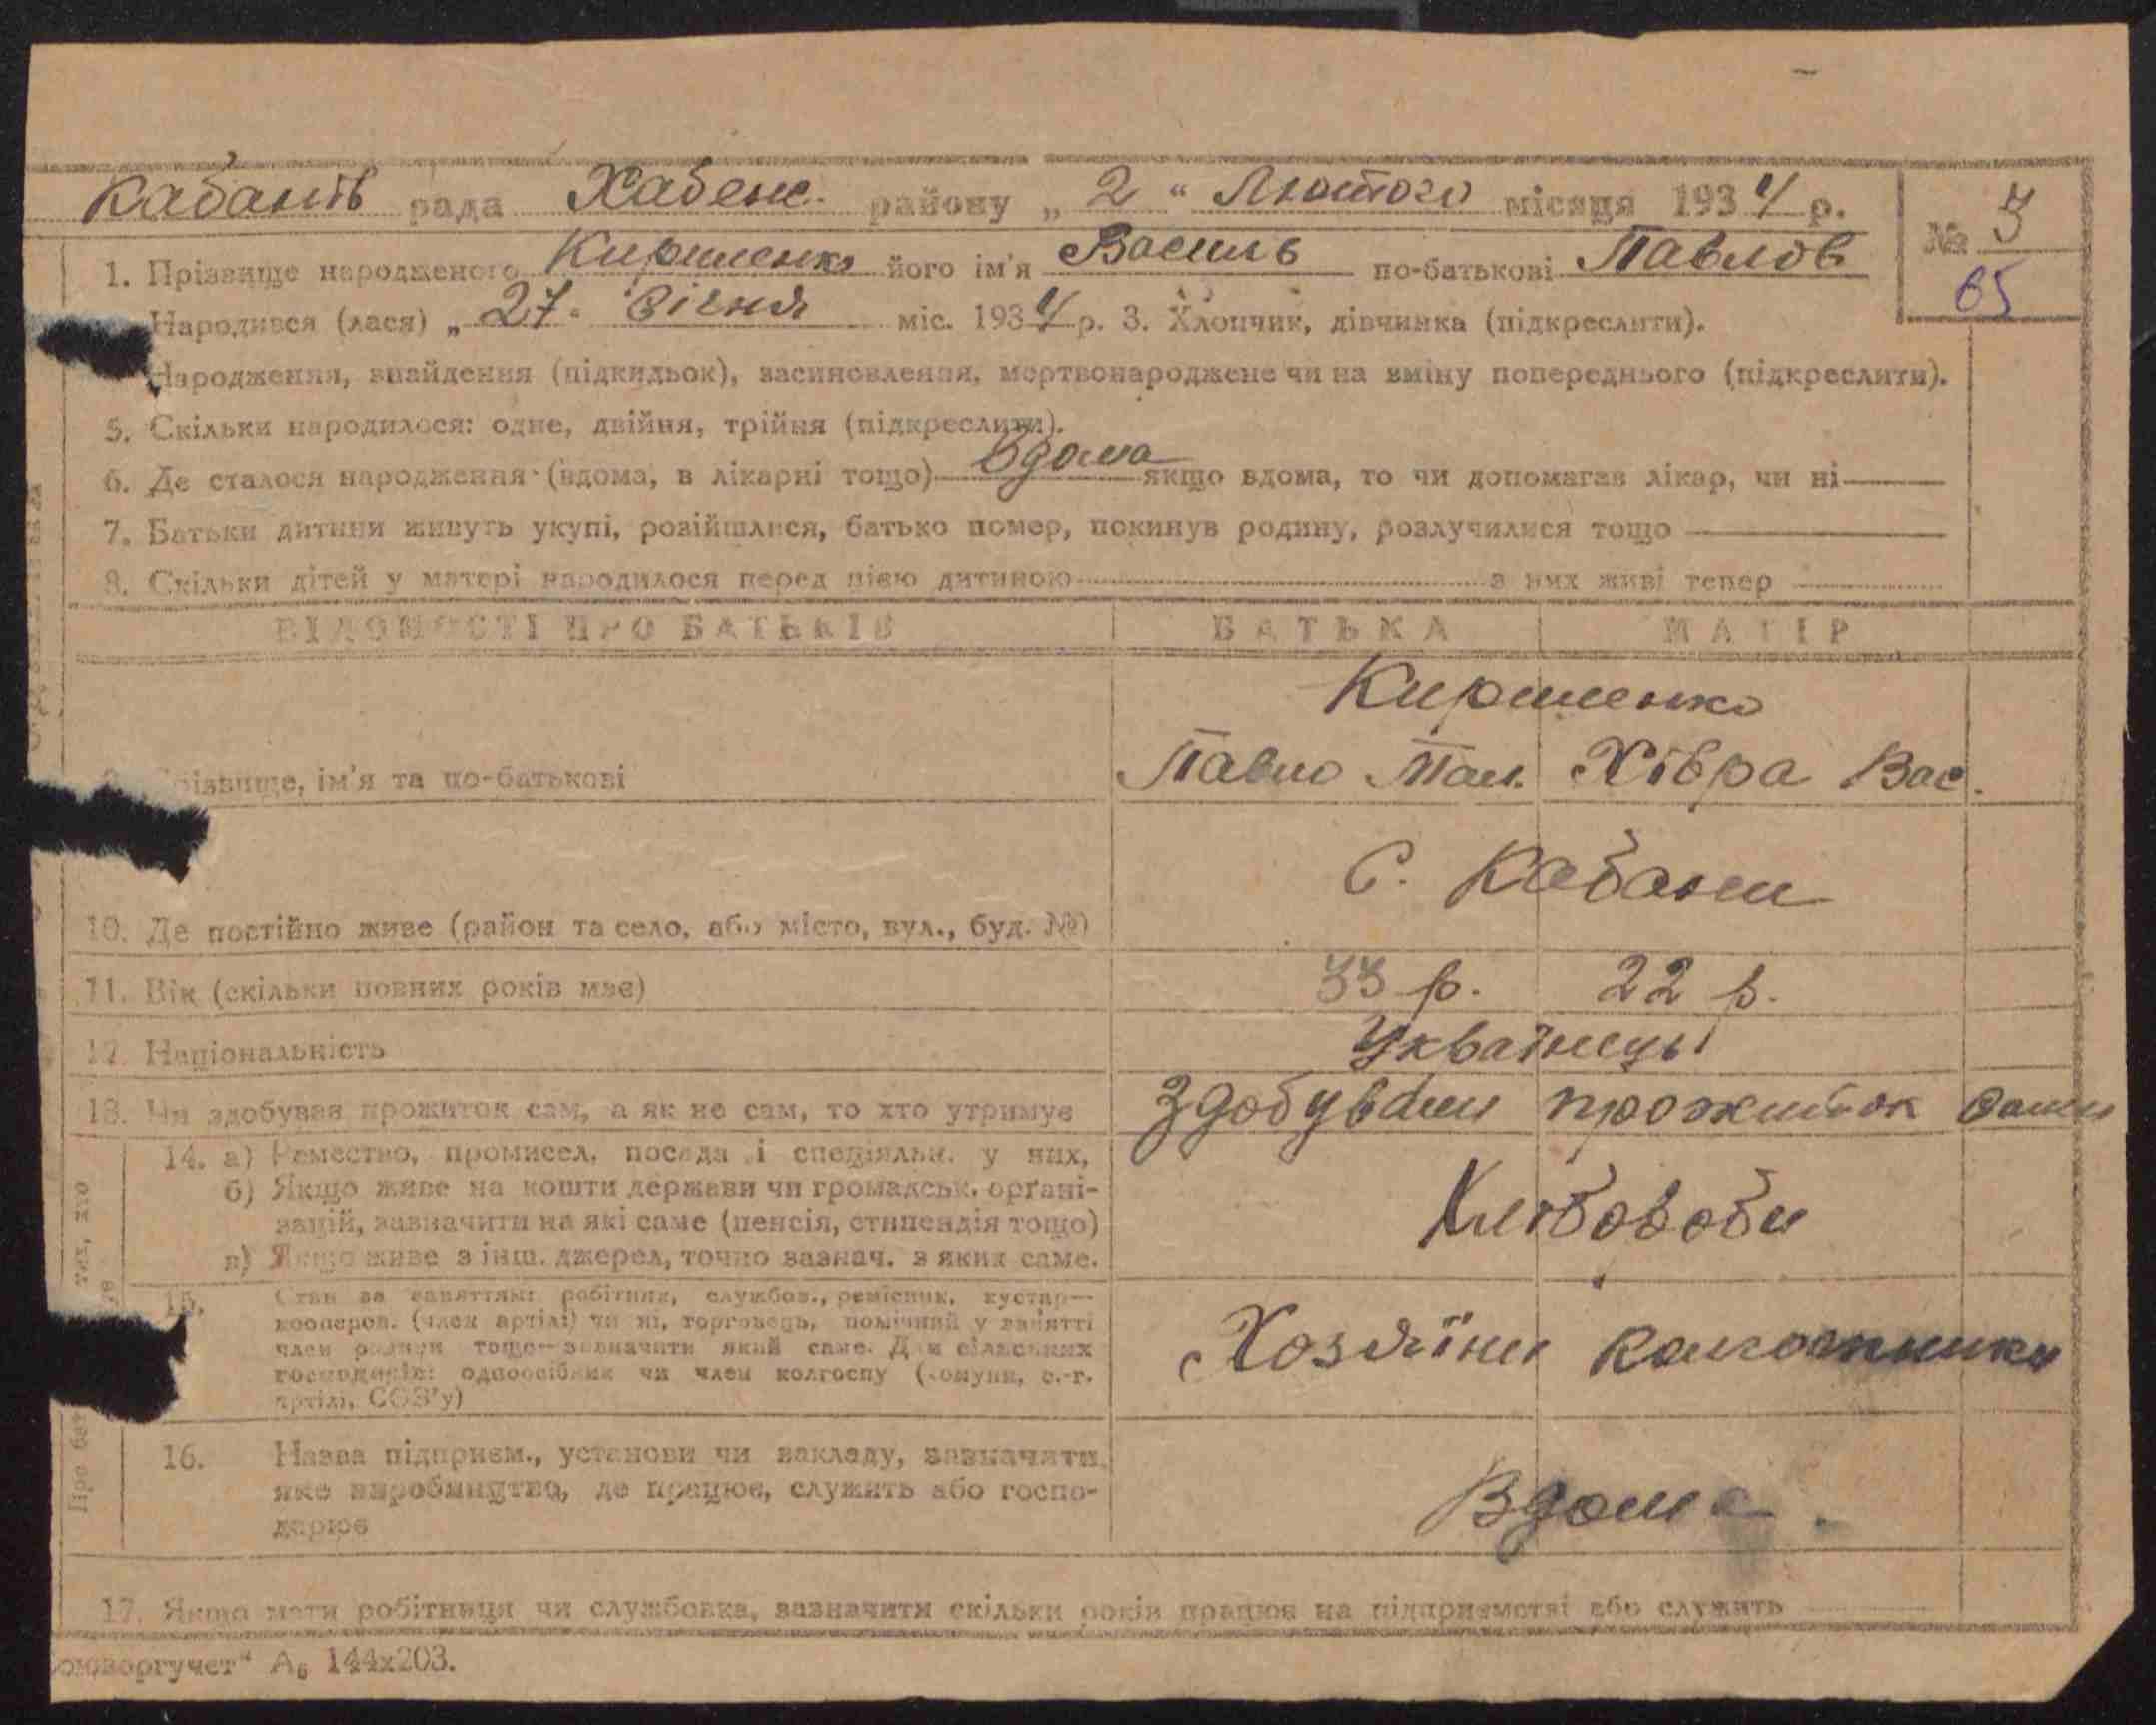 Кабанів рада Хабенс. району „ 2 “ Лютого місяця 1934 р.
№ 3
65
1. Прізвище народженого Киришенко його ім'я Василь по-батькові Павлов
Народився (лася) „ 27 " Січня міс. 1934 р. 3. Хлопчик, дівчинка (підкреслити).
Народження, знайдення (підкидьок), засиновлення, мертвонароджене чи на зміну попереднього (підкреслити).
5. Скільки народилося: одне, двійня, трійня (підкреслити).
6. Де сталося народження (вдома, в лікарні тощо) Вдома якщо вдома, то чи допомагав лікар, чи ні
7. Батьки дитини живуть укупі, розійшлися, батько помер, покинув родину, розлучилися тощо
8. Скільки дітей у матері народилося перед цією дитиною з них живі тепер
ВІДОМОСТІ ПРО БАТЬКІВ БАТЬКА МАТІР
Киришенко
різвище, ім'я та по-батькові Павло Хівра Вас.
10. Де постійно живе (район та село, або місто, вул., буд. №) С. Кабани
11. Вік (скільки повних років має) 33 р. 22 р.
12. Національність Українець
13. Чи здобував прожиток сам, а як не сам, то хто утримує Здобували прожиток сами
14. а) Ремество, промисел, посада і спеціяльн. у них,
б) Якщо живе на кошти держави чи громадськ. орґані-
зацій, зазначити на які саме (пенсія, стипендія тощо)
в) Якщо живе з інш. джерел, точно зазнач. з яких саме.
Хлібороби
15. Стан за заняттям: робітник, службов., ремісник, кустар—
кооперов. (член артілі) чи ні, торговець, помічний у занятті
член родини тощо—зазначити який саме. Для сільських
господарів: одноосібник чи член колгоспу (комуни, с.-г.
артілі, СОЗ'у)
Хозяїни колгоспники
16. Назва підприєм., установи чи закладу, зазначити
яке виробництво, де працює, служить або госпо-
дарює
Вдома.
17. Якщо мати робітниця чи службовка, зазначити скільки років працює на підприємстві або служить
оюзоргучет“ А₆ 144х203.